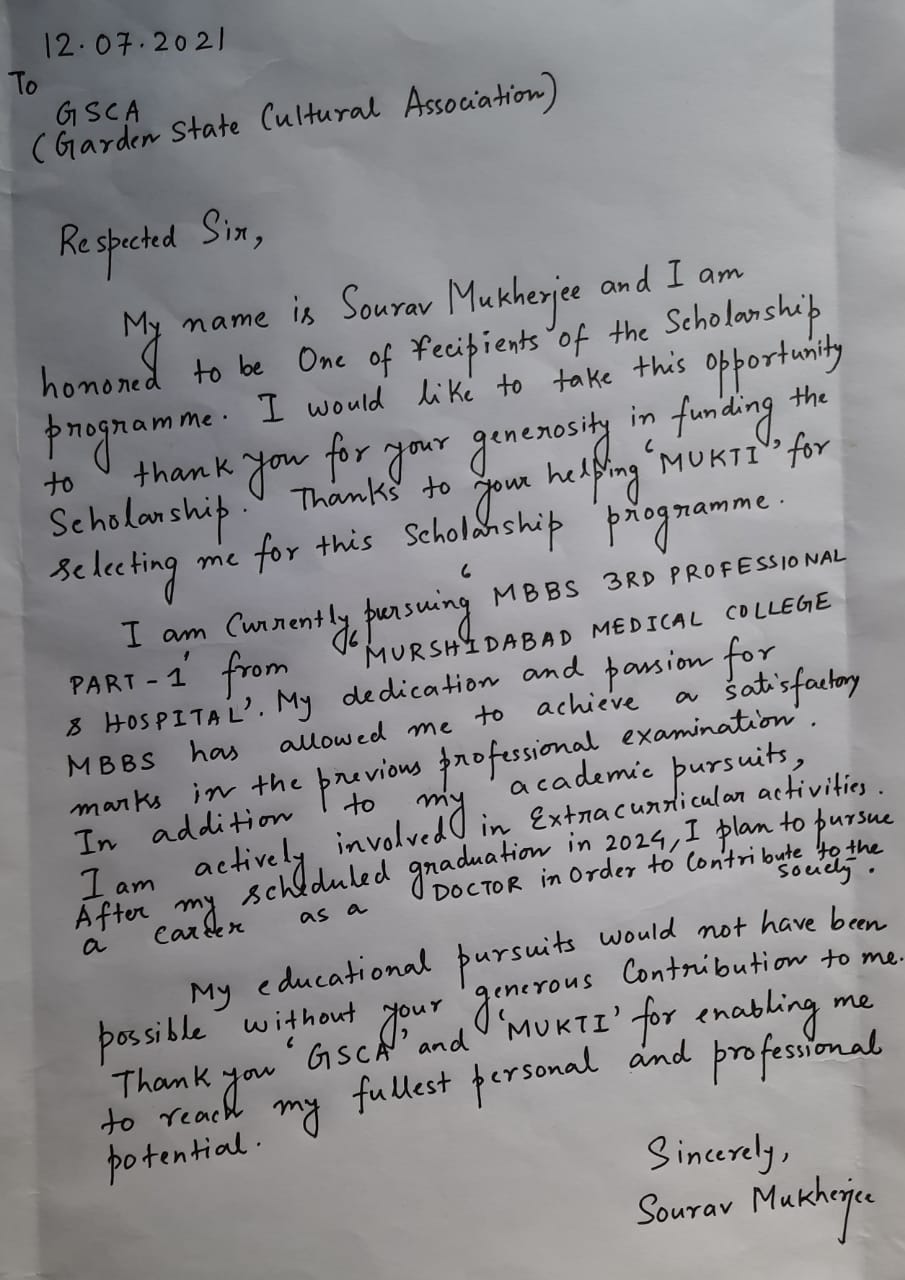 12.07.2021
To
GSCA
(Garden State Cultural Association)
Respected Sir,
My name is Sourav Mukherjee and I am
honored to be One of recipients of the Scholarship
programme. I would like to take this opportunity
to thank you for your generosity in funding the
Scholarship. Thanks to your helping 'MUKTI' for
selecting me for this Scholarship programme.
I am Currently pursuing 'MBBS 3RD PROFESSIONAL
PART-1' from "MURSHIDABAD MEDICAL COLLEGE
& HOSPITAL'. My dedication and passion for
MBBS has allowed me to achieve a satisfactory
marks in the previous professional examination.
In addition to my academic pursuits,
I am actively involved in Extracurricular activities.
After my scheduled graduation in 2024, I plan to pursue
a career as a DOCTOR in order to Contribute to the
society.
My educational pursuits would not have been
possible without your generous Contribution to me.
Thank you 'GSCA' and 'MUKTI' for enabling me
to reach my fullest personal and professional
potential.
Sincerely,
Sourav Mukherjee